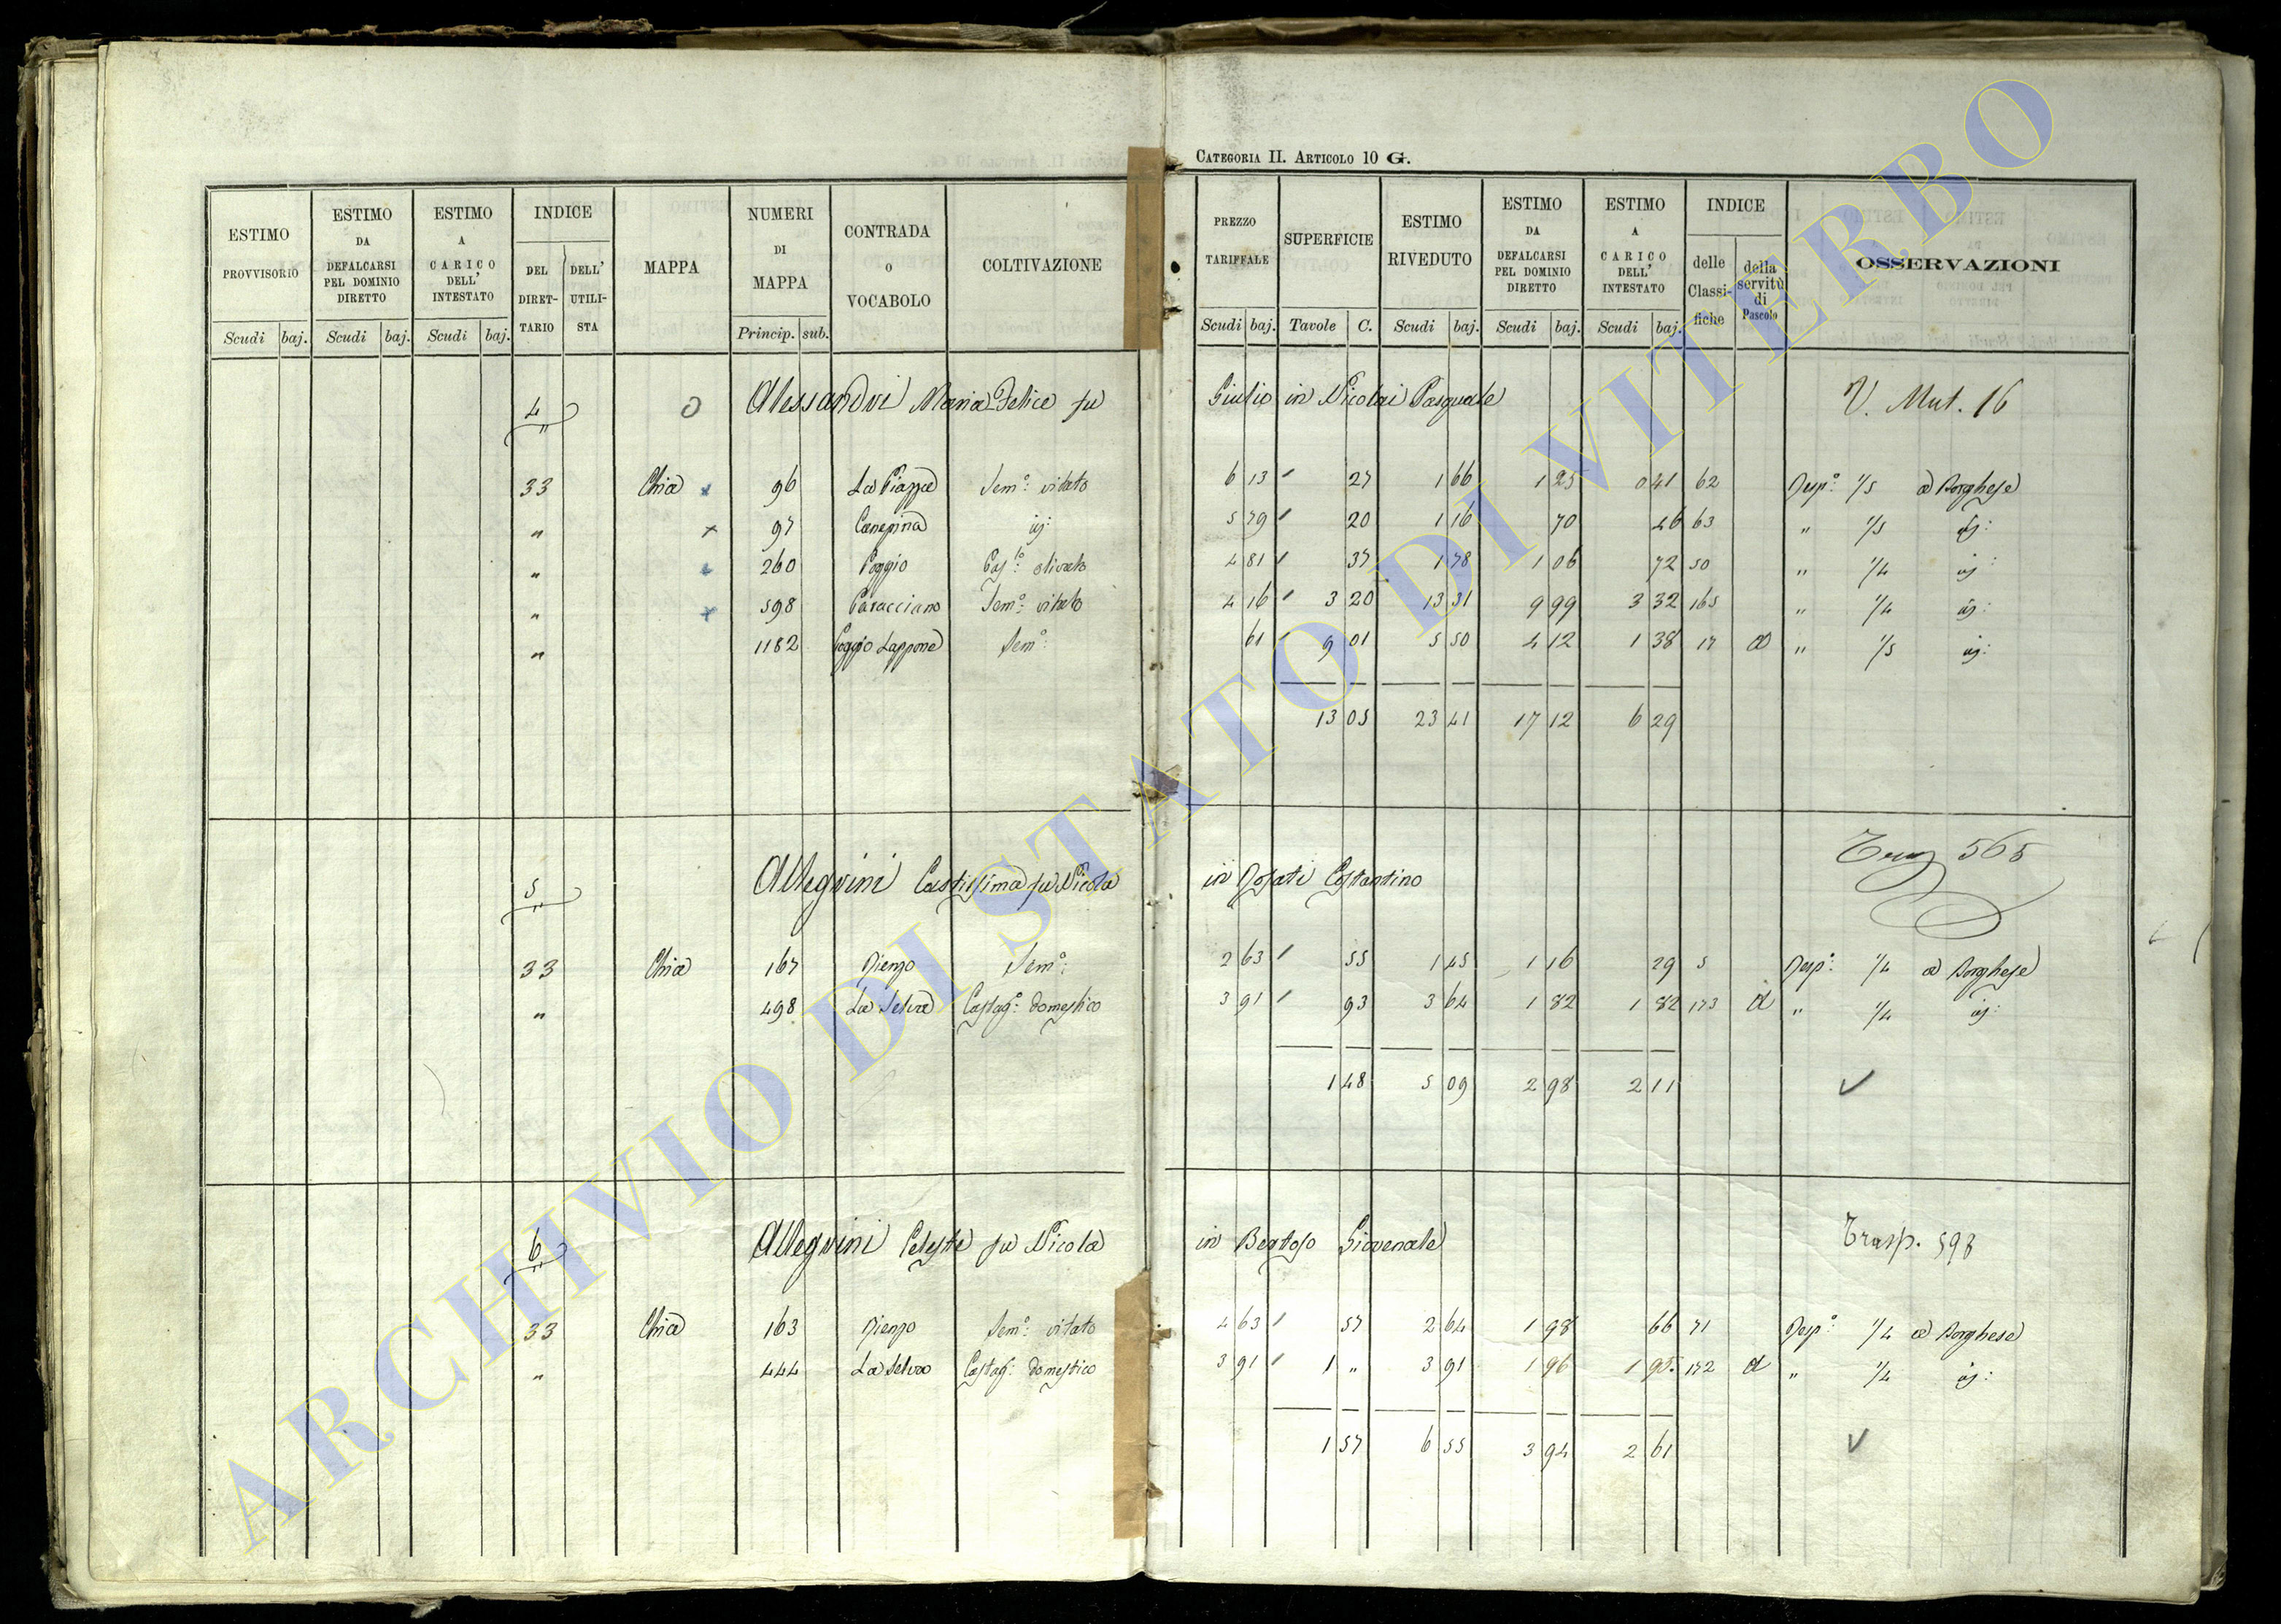 CATEGORIA II. ARTICOLO 10 G.
ESTIMO PROVVISORIO Scudi baj.
ESTIMO DA DEFALCARSI PEL DOMINIO DIRETTO Scudi baj.
ESTIMO A CARICO DELL' INTESTATO Scudi baj.
INDICE DEL DIRETTARIO DELL' UTILISTA
MAPPA
NUMERI DI MAPPA Princip. sub.
CONTRADA O VOCABOLO
COLTIVAZIONE
PREZZO TARIFFALE Scudi baj.
SUPERFICIE Tavole C.
ESTIMO RIVEDUTO Scudi baj.
ESTIMO DA DEFALCARSI PEL DOMINIO DIRETTO Scudi baj.
ESTIMO A CARICO DELL' INTESTATO Scudi baj.
INDICE delle Classifiche della servitù di Pascolo
OSSERVAZIONI
4 Alessandri Maria Felice fu Giulio in Nicolai Pasquale V. Mut. 16
33 Chia 96 La Piazza Sem.º vitato 6 13 27 1 66 1 25 0 41 62 Risp.ª 1/5 a Borghese
" 97 Canepina id: 5 79 20 1 16 70 46 63 " 1/5 id:
" 260 Poggio Cas.º olivato 4 81 37 1 78 1 06 72 50 " 1/4 id:
" 598 Caracciano Sem.º vitato 4 16 3 20 13 31 9 99 3 32 165 " 1/4 id:
" 1182 Poggio Lappone Sem.º 61 9 01 5 50 4 12 1 38 17 a " 1/5 id:
13 05 23 41 17 12 6 29
5 Allegrini Castissima fu Nicola in Rosati Costantino 565
33 Chia 167 Rienzo Sem.º 2 63 55 1 45 1 16 29 5 Risp.ª 1/4 a Borghese
" 498 La Selva Castag.º domestico 3 91 93 3 64 1 82 1 82 173 a " 1/4 id:
1 48 5 09 2 98 2 11
6 Allegrini Celeste fu Nicola in Bertoso Giovenale Trasp. 598
33 Chia 163 Rienzo Sem.º vitato 4 63 57 2 64 1 98 66 71 Risp.ª 1/4 a Borghese
" 444 La Selva Castag.º domestico 3 91 1 " 3 91 1 96 1 95 172 a " 1/4 id:
1 57 6 55 3 94 2 61
ARCHIVIO DI STATO DI VITERBO